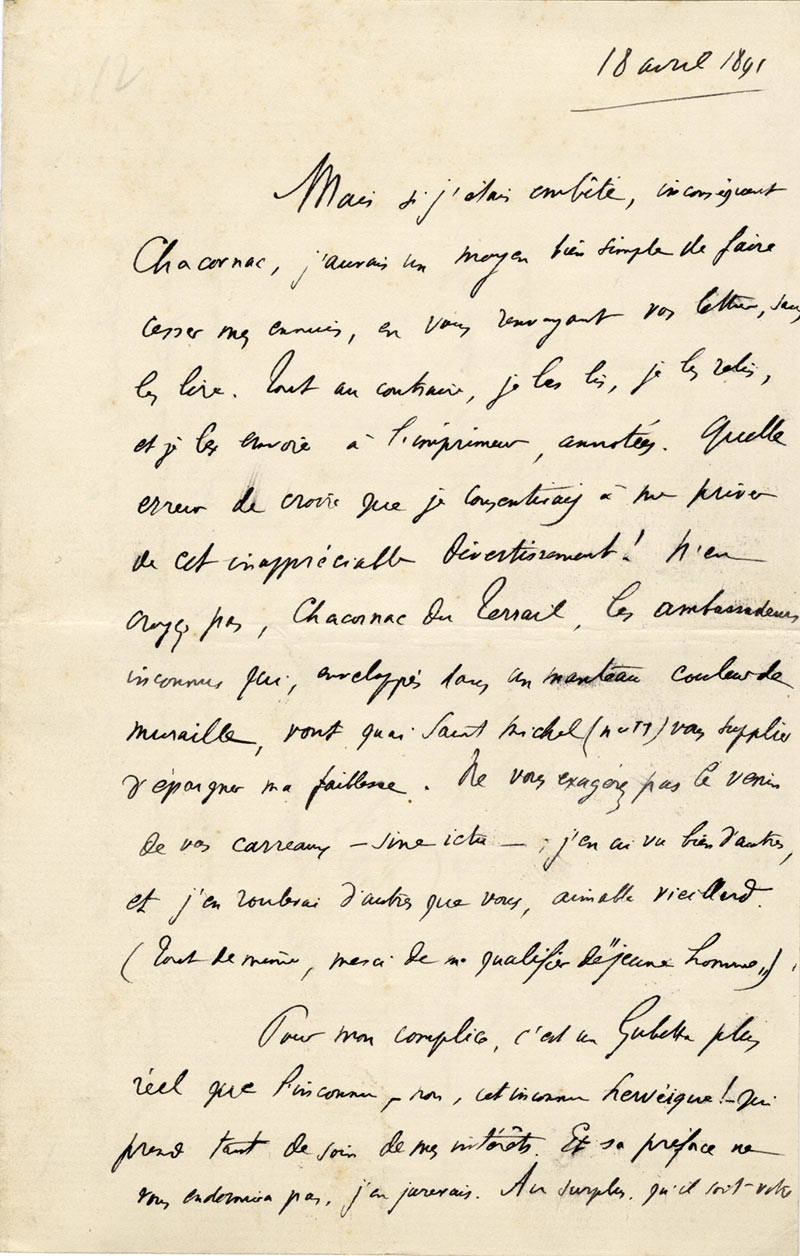 12
18 avril 1891
Mais si j'étais embêté, inconséquent
Chacornac, j'aurais un moyen bien simple de faire
cesser mes ennuis, en vous renvoyant vos lettres, sans
les lire. Tout au contraire, je les lis, je les relis,
et je les envoie à l'imprimeur, annotées. Quelle
erreur de croire que je consentirais à me priver
de cet inappréciable divertissement! N'en
croyez pas, Chacornac du Terrail, les ambassadeurs
inconnus qui, enveloppés dans un manteau couleur de
muraille, vont quai Saint Michel (nuit) vous supplier
d'épargner ma faiblesse. Ne vous exagérez pas le venin
de vos carreaux – sine ictu – ; j'en ai vu bien d'autres,
et j'en roulerai d'autres que vous, aimable vieillard.
(Tout de même, merci de me qualifier de "jeune homme„)
Pour mon complice, c'est un Gubetta plus
réel que l'inconnu, – non, cet inconnu hervéique! – qui
prend tant de soin de mes intérêts. Et sa préface ne
vous endormira pas, j'en jurerais. Au surplus, qu'il soit votre